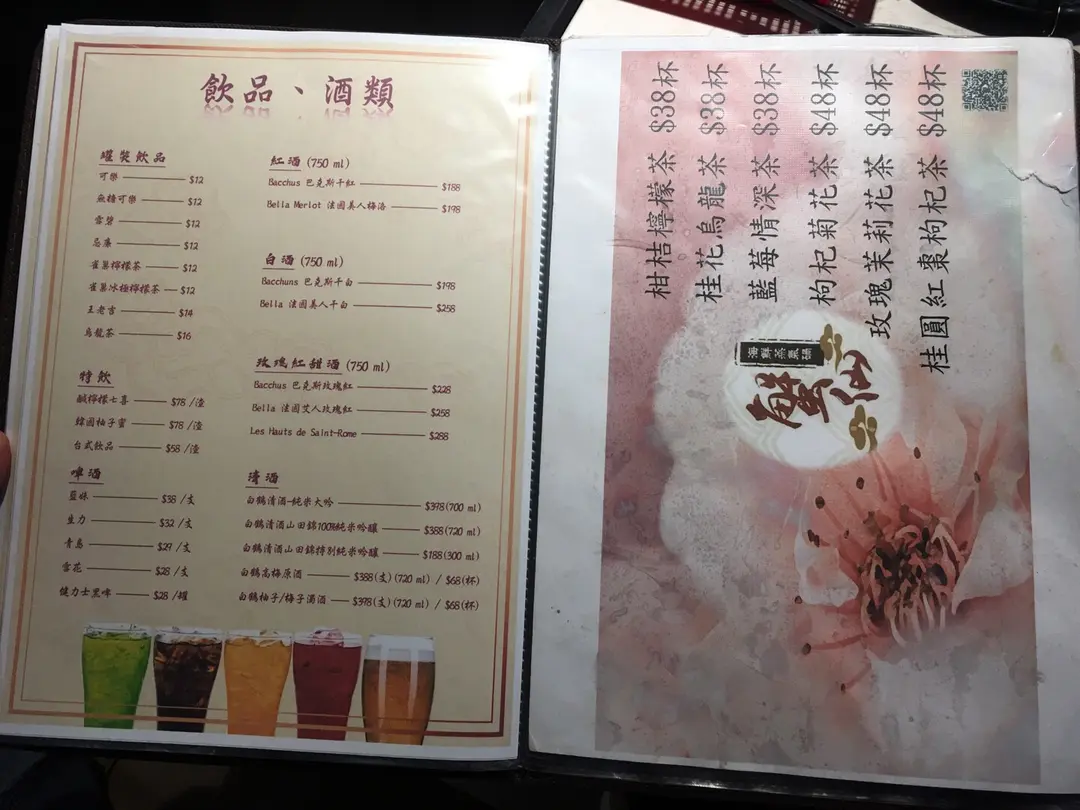 飲品、酒類
罐裝飲品
可樂 $12
無糖可樂 $12
雪碧 $12
忌廉 $12
雀巢檸檬茶 $12
雀巢冰極檸檬茶 $12
王老吉 $14
烏龍茶 $16
特飲
鹹檸檬七喜 $78 /渣
韓國柚子蜜 $78 /渣
台式飲品 $58 /渣
啤酒
藍妹 $38 /支
生力 $32 /支
青島 $29 /支
雪花 $28 /支
健力士黑啤 $28 /罐
紅酒 (750 ml)
Bacchus 巴克斯干紅 $188
Bella Merlot 法國美人梅洛 $198
白酒 (750 ml)
Bacchuns 巴克斯干白 $198
Bella 法國美人干白 $258
玫瑰紅甜酒 (750 ml)
Bacchus 巴克斯玫瑰紅 $228
Bella 法國艾人玫瑰紅 $258
Les Hauts de Saint-Rome $288
清酒
白鶴清酒-純米大吟 $398(700 ml)
白鶴清酒山田錦100%純米吟釀 $388(720 ml)
白鶴清酒山田錦特別純米吟釀 $188(300 ml)
白鶴高梅原酒 $388(支)(720 ml) / $68(杯)
白鶴柚子/梅子濁酒 $398(支)(720 ml) / $68(杯)
柑桔檸檬茶 $38杯
桂花烏龍茶 $38杯
藍莓情深茶 $38杯
枸杞菊花茶 $48杯
玫瑰茉莉花茶 $48杯
桂圓紅棗枸杞茶 $48杯
海鮮蒸氣鍋
蟹仙